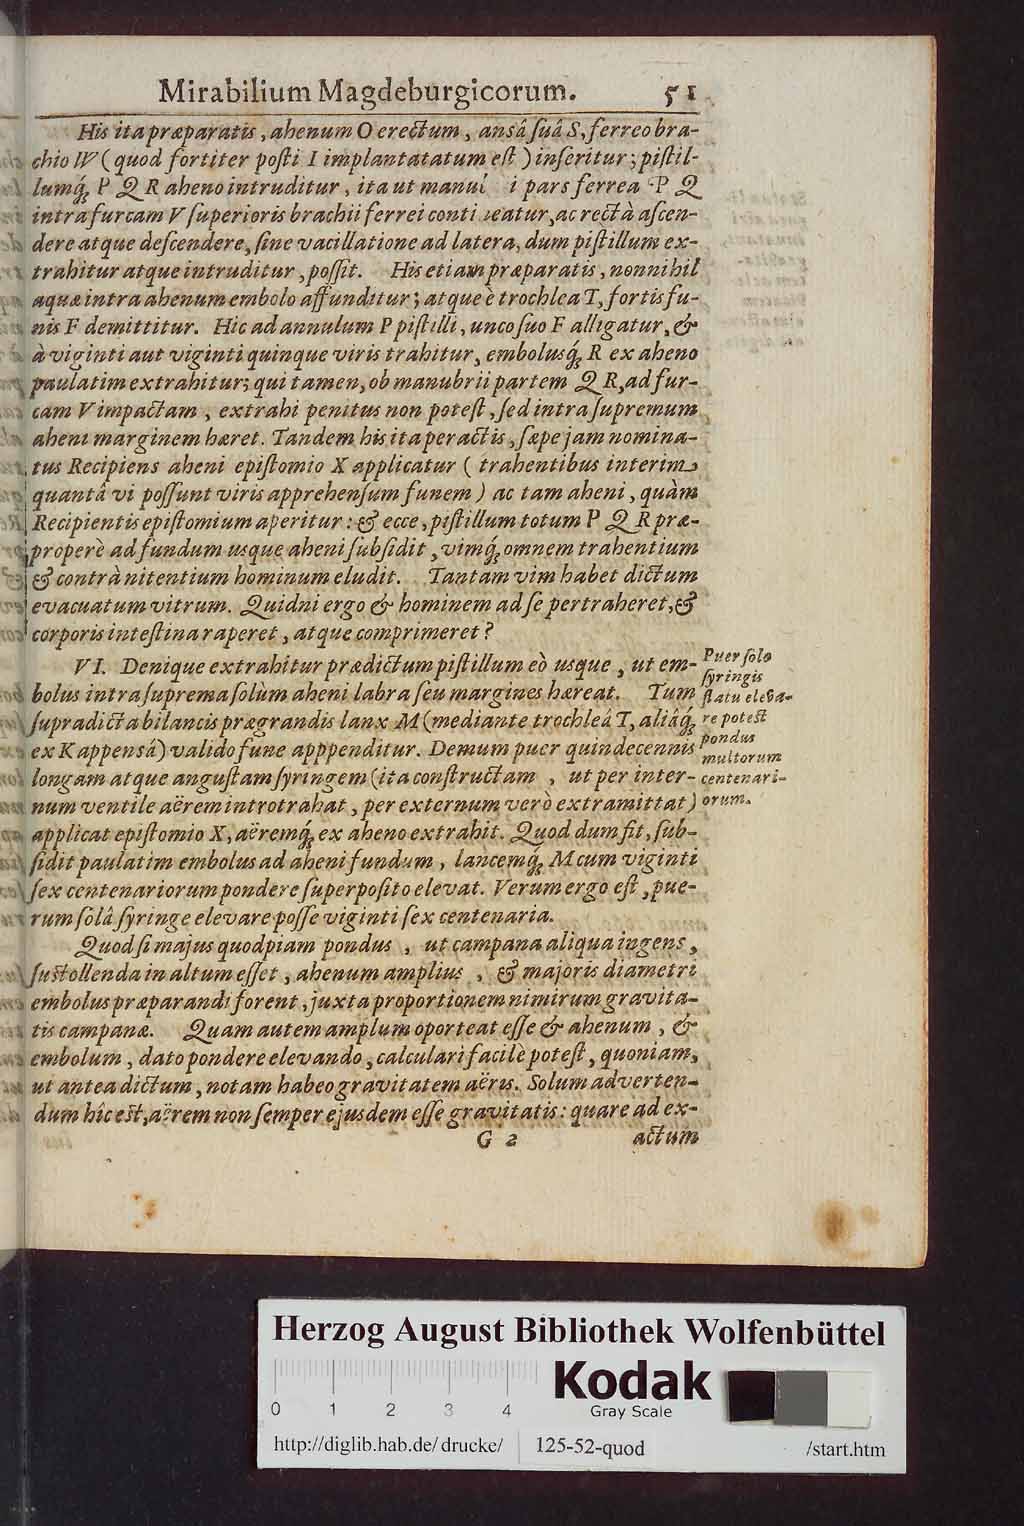 Mirabilium Magdeburgicorum. 51
His ita præparatis, ahenum O erectum, ansâ ſuâ S, ferreo bra-
chio W (quod fortiter poſti I implantatatum eſt) inſeritur; piſtil-
lumq́ꝫ P Q R aheno intruditur, ita ut pars ferrea P Q
intra furcam V ſuperioris brachii ferrei ac rectà aſcen-
dere atque deſcendere, ſine vacillatione ad latera, dum piſtillum ex-
trahitur atque intruditur, poſſit. His etiam præparatis, nonnihil
aquæ intra ahenum embolo affunditur; atque è trochlea T, fortis fu-
nis F demittitur. Hic ad annulum P piſtilli, unco ſuo F alligatur, &
à viginti aut viginti quinque viris trahitur, embolusq́ꝫ R ex aheno
paulatim extrahitur; qui tamen, ob manubrii partem Q R, ad fur-
cam V impactam, extrahi penitus non poteſt, ſed intra ſupremum
aheni marginem hæret. Tandem his ita peractis, ſæpe jam nomina-
tus Recipiens aheni epiſtomio X applicatur (trahentibus interim
quantâ vi poſſunt viris apprehenſum funem) ac tam aheni, quàm
Recipientis epiſtomium aperitur: & ecce, piſtillum totum P Q R præ-
properè ad fundum usque aheni ſubſidit, vimq́ꝫ omnem trahentium
& contrà nitentium hominum eludit. Tantam vim habet dictum
evacuatum vitrum. Quidni ergo & hominem ad ſe pertraheret, &
corporis inteſtina raperet, atque comprimeret?
VI. Denique extrahitur prædictum piſtillum eò usque, ut em-
bolus intra ſuprema ſolùm aheni labra ſeu margines hæreat. Tum
ſupradicta bilancis prægrandis lanx M (mediante trochleâ T, aliâq́ꝫ
ex K appensâ) valido fune apppenditur. Demum puer quindecennis
longam atque anguſtam ſyringem (ita conſtructam, ut per inter-
num ventile aërem introtrahat, per externum verò extramittat)
applicat epiſtomio X, aëremq́ꝫ ex aheno extrahit. Quod dum fit, ſub-
ſidit paulatim embolus ad aheni fundum, lancemq́ꝫ M cum viginti
ſex centenariorum pondere ſuperpoſito elevat. Verum ergo eſt, pue-
rum ſolâ ſyringe elevare poſſe viginti ſex centenaria.
Puer ſolo
ſyringis
flatu eleva-
re potest
pondus
multorum
centenari-
orum.
Quod ſi majus quodpiam pondus, ut campana aliqua ingens,
ſustollenda in altum eſſet, ahenum amplius, & majoris diametri
embolus præparandi forent, juxta proportionem nimirum gravita-
tis campanæ. Quam autem amplum oporteat eſſe & ahenum, &
embolum, dato pondere elevando, calculari facilè poteſt, quoniam,
ut antea dictum, notam habeo gravitatem aëris. Solum adverten-
dum hîc est, aërem non ſemper ejusdem eſſe gravitatis: quare ad ex-
G 2 actum
Herzog August Bibliothek Wolfenbüttel
Kodak
Gray Scale
0 1 2 3 4
http://diglib.hab.de/drucke/ 125-52-quod /start.htm